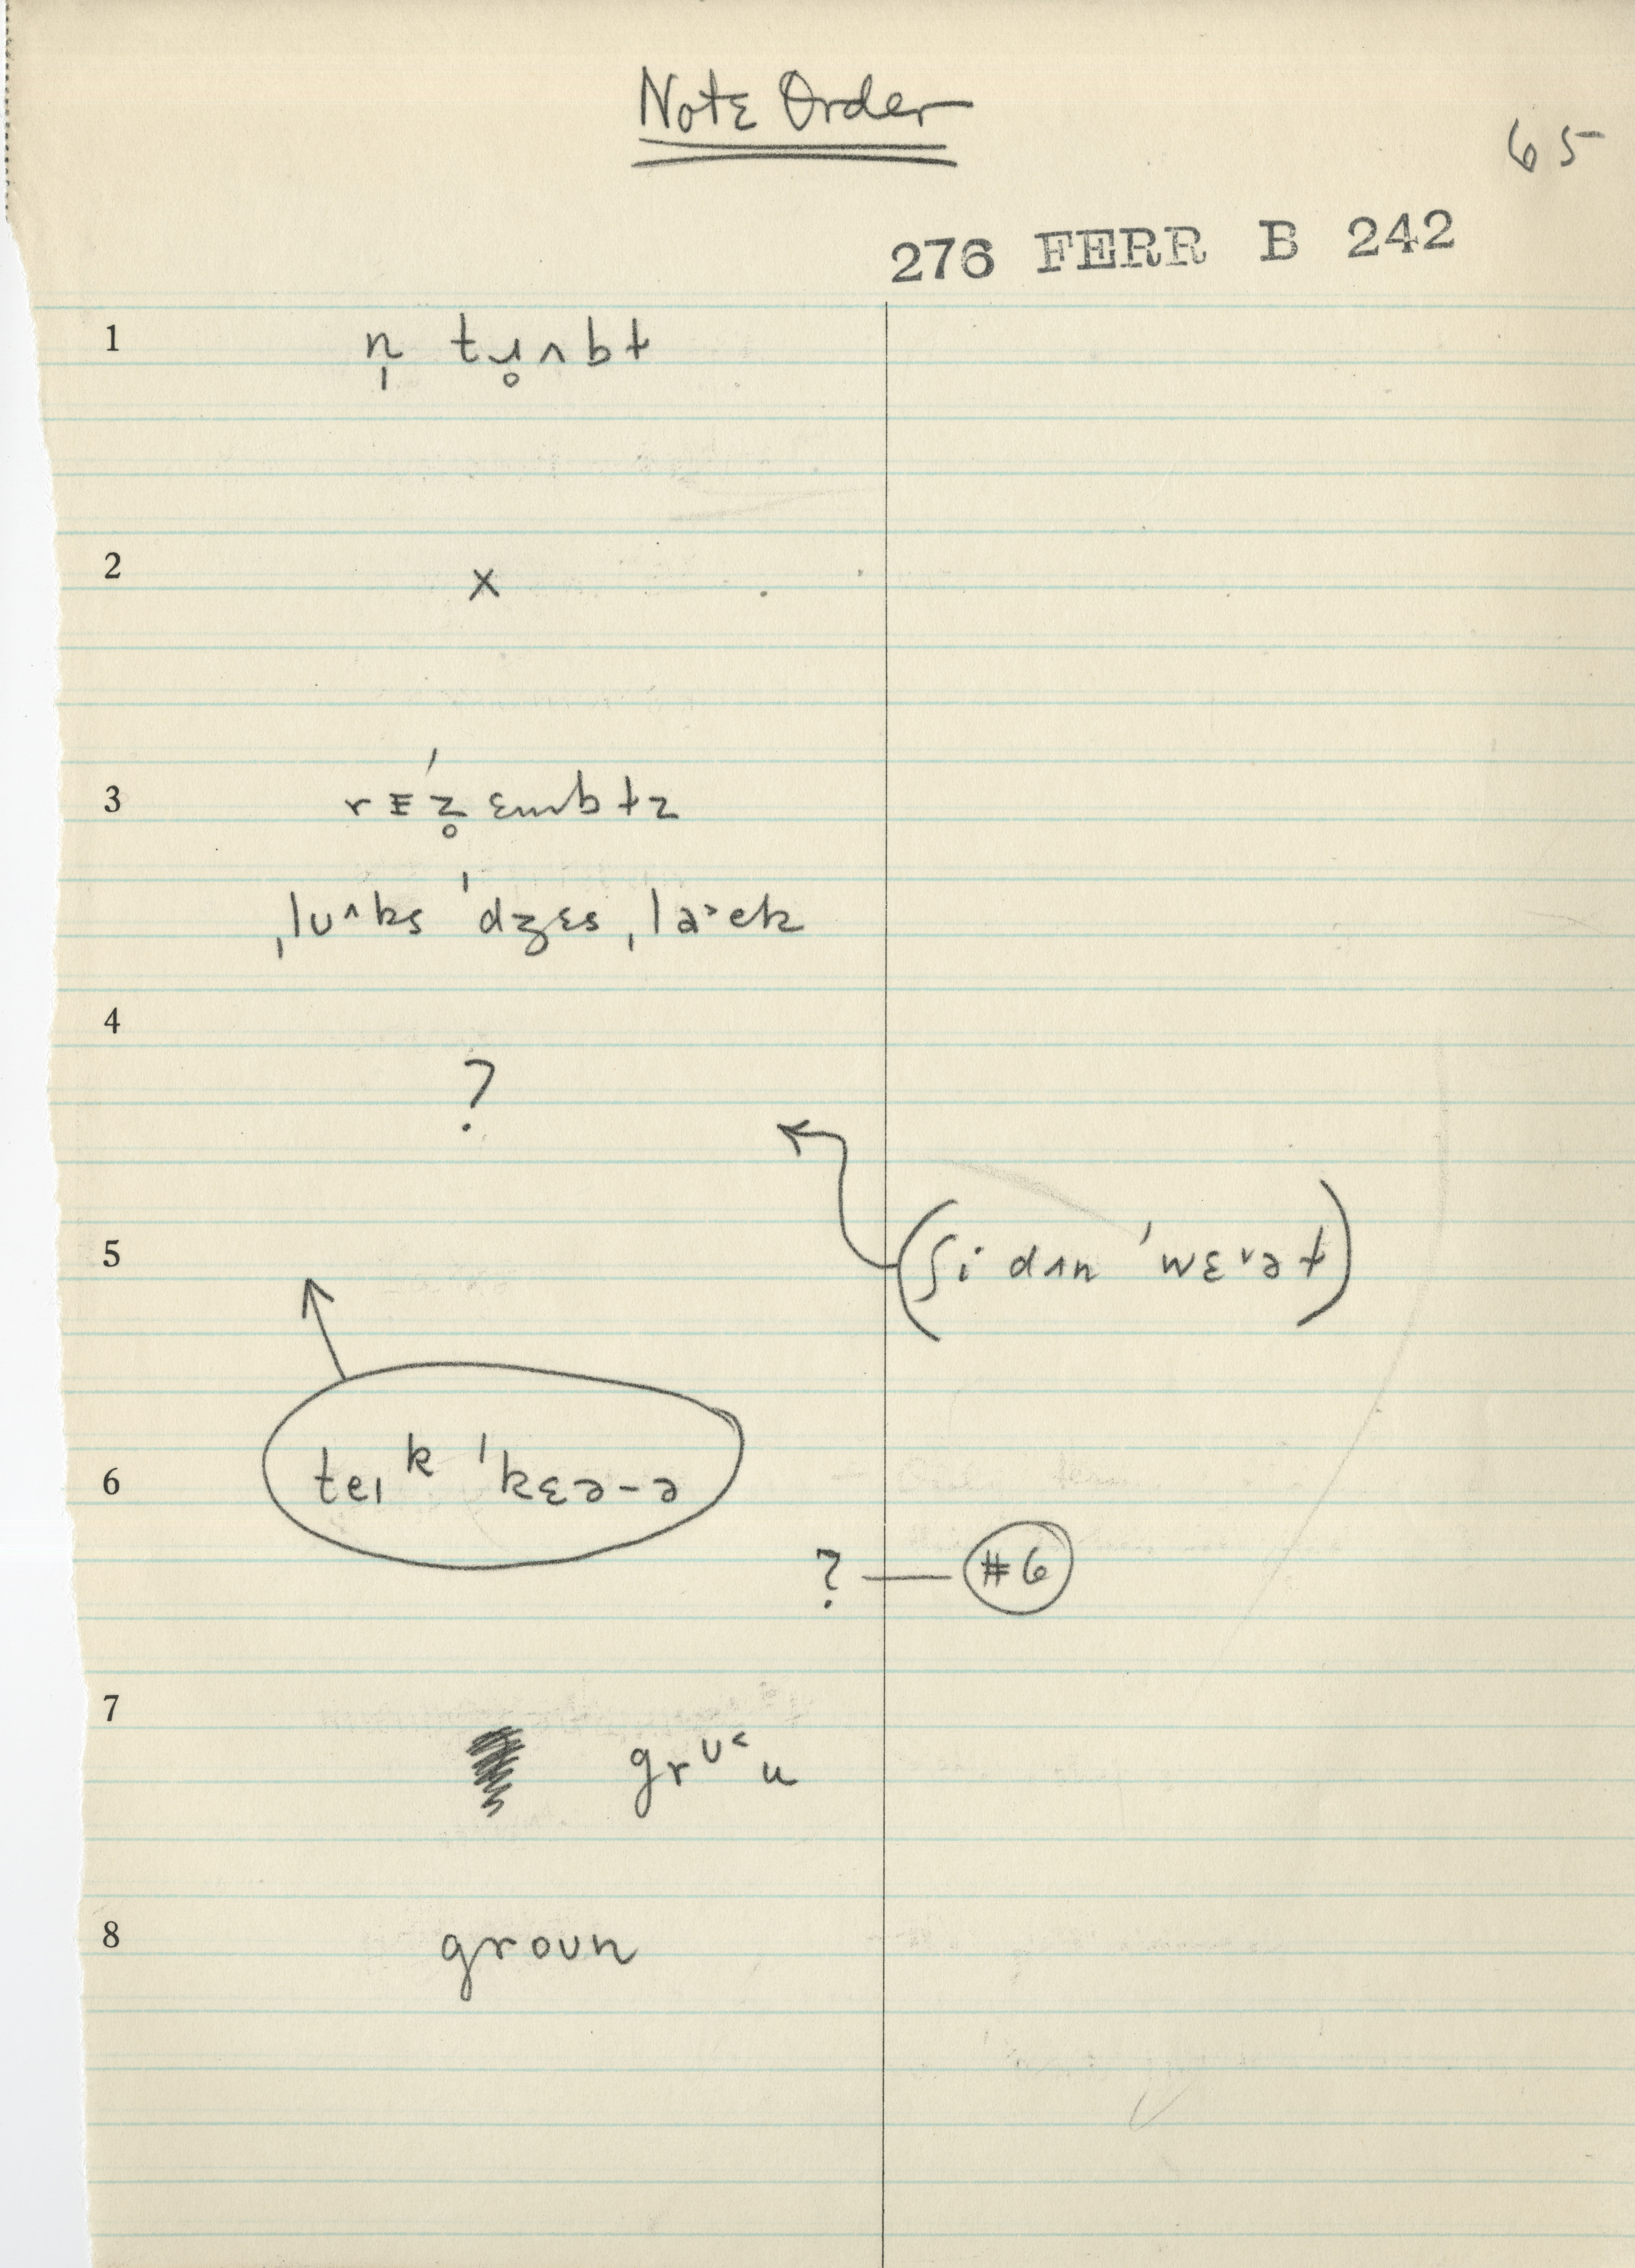 Note Order
65
276 FERR B 242
1
n̩ tɹ̥ʌbɫ
2
x
3
rɛz̥ɛmbɫz
ˌlʊ^ks ˈdʒɛs ˌla˃ɛk
4
?
5
(ʃi dʌn ˈwɛ˅ət)
6
teɪᵏ ˈkɛə-ə
? — #6
7
grᶷ˂u
8
groʊn